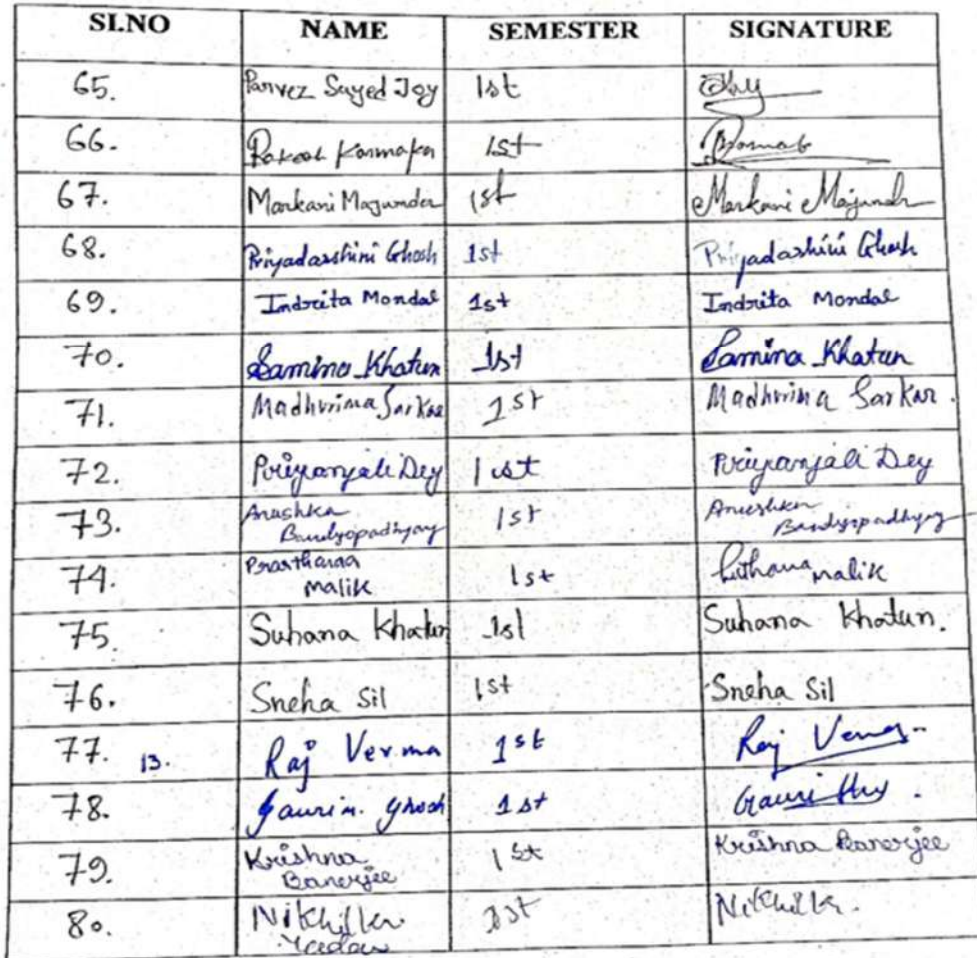 SI.NO NAME SEMESTER SIGNATURE
65. Parvez Sayed Joy 1st
66. Karmakar 1st
67. Markani Majumder 1st Markani Majumdr
68. Priyadarshini Ghosh 1st Priyadarshini Ghosh
69. Indrita Mondal 1st Indrita Mondal
70. Samina Khatun 1st Samina Khatun
71. Madhurima Sarkar 1st Madhurima Sarkar.
72. Priyanjali Dey 1st Priyanjali Dey
73. Anushka 1st Anushka
Bandyopadhyay Bandyopadhyay
74. Prarthana 1st malik
malik
75. Suhana Khatun 1st Suhana Khatun.
76. Sneha Sil 1st Sneha Sil
77. 13. Raj Verma 1st Raj Verma
78. Ghosh 1st Gauri
79. Krishna 1st Krishna Banerjee
Banerjee
80. Nikhil Kr. 1st Nikhil Kr.
Yadav